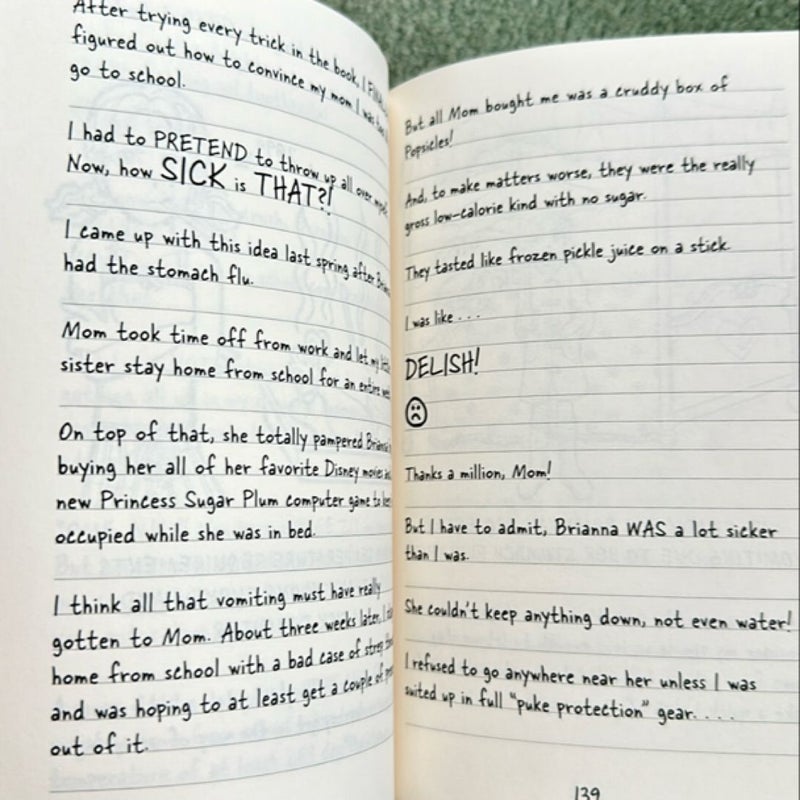 After trying every trick in the book, I FINALLY
figured out how to convince my mom I was too
go to school.
I had to PRETEND to throw up all over
Now, how SICK is THAT?!
I came up with this idea last spring after Brianna
had the stomach flu.
Mom took time off from work and let my little
sister stay home from school for an entire
On top of that, she totally pampered Brianna
buying her all of her favorite Disney movies
new Princess Sugar Plum computer game to keep
occupied while she was in bed.
I think all that vomiting must have really
gotten to Mom. About three weeks later, I
home from school with a bad case of strep
and was hoping to at least get a couple of
out of it.
But all Mom bought me was a cruddy box of
Popsicles!
And, to make matters worse, they were the really
gross low-calorie kind with no sugar.
They tasted like frozen pickle juice on a stick.
I was like . . .
DELISH!
☹
Thanks a million, Mom!
But I have to admit, Brianna WAS a lot sicker
than I was.
She couldn't keep anything down, not even water!
I refused to go anywhere near her unless I was
suited up in full "puke protection" gear. . . .
139